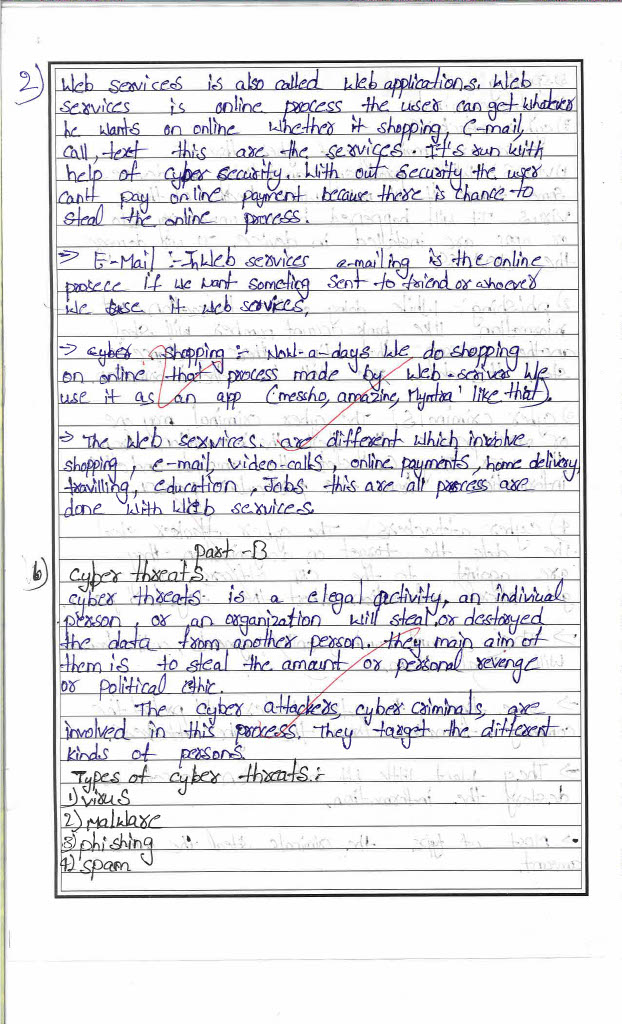 2) Web services is also called Web applications. Web
services is online process the user can get whatever
he wants on online whether it shopping, E-mail,
call, text this are the services. It's run with
help of cyber security. With out security the user
cantt pay online payment because there is chance to
steal the online process.
=> E-Mail :- In Web services e-mailing is the online
prosece if we want someting sent to friend or whoever
we use it web services,
=> cyber shopping :- Now-a-days We do shopping
on online that process made by web-servives We
use it as an app (messho, amazine, Myntra' like that).
=> The Web services. are different which involve
shopping, e-mail, video-calls, online payments, home delivery,
travilling, education, Jobs this are all process are
done with Web services.
Part - B
6) cyber threats.
cyber threats is a elegal activity, an indiviual
person, or an organization will steal or destoryed
the data from another person. they main aim of
them is to steal the amount or personal revenge
or political ethic.
The cyber attackers, cyber criminals, are
involved in this process. They target the different
kinds of persons
Types of cyber threats :-
1) virus
2) Malware
3) phishing
4) spam